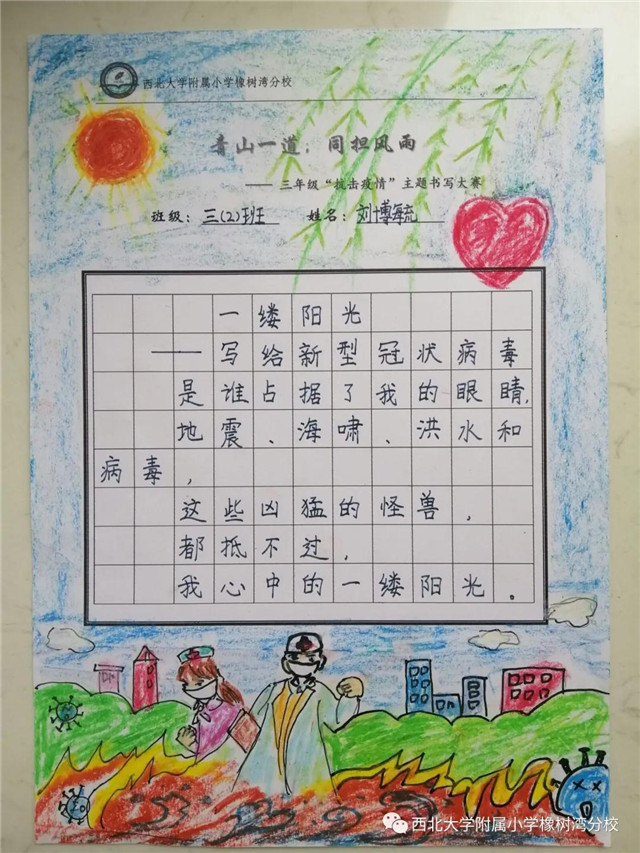 西北大学附属小学橡树湾分校
青山一道，同担风雨
—— 三年级“抗击疫情”主题书写大赛
班级：三(2)班 姓名：刘博毓
一缕阳光
——写给新型冠状病毒
是谁占据了我的眼睛，
地震、海啸、洪水和
病毒，
这些凶猛的怪兽，
都抵不过，
我心中的一缕阳光。
西北大学附属小学橡树湾分校